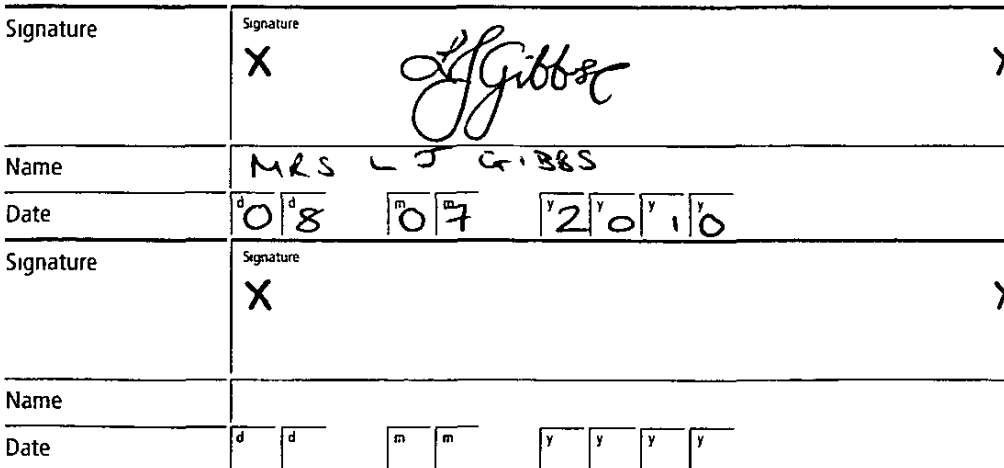 Signature Signature
X LJGibbs X
Name MRS L J GIBBS
Date d0 d8 m0 m7 y2 y0 y1 y0
Signature Signature
X X
Name
Date d d m m y y y y